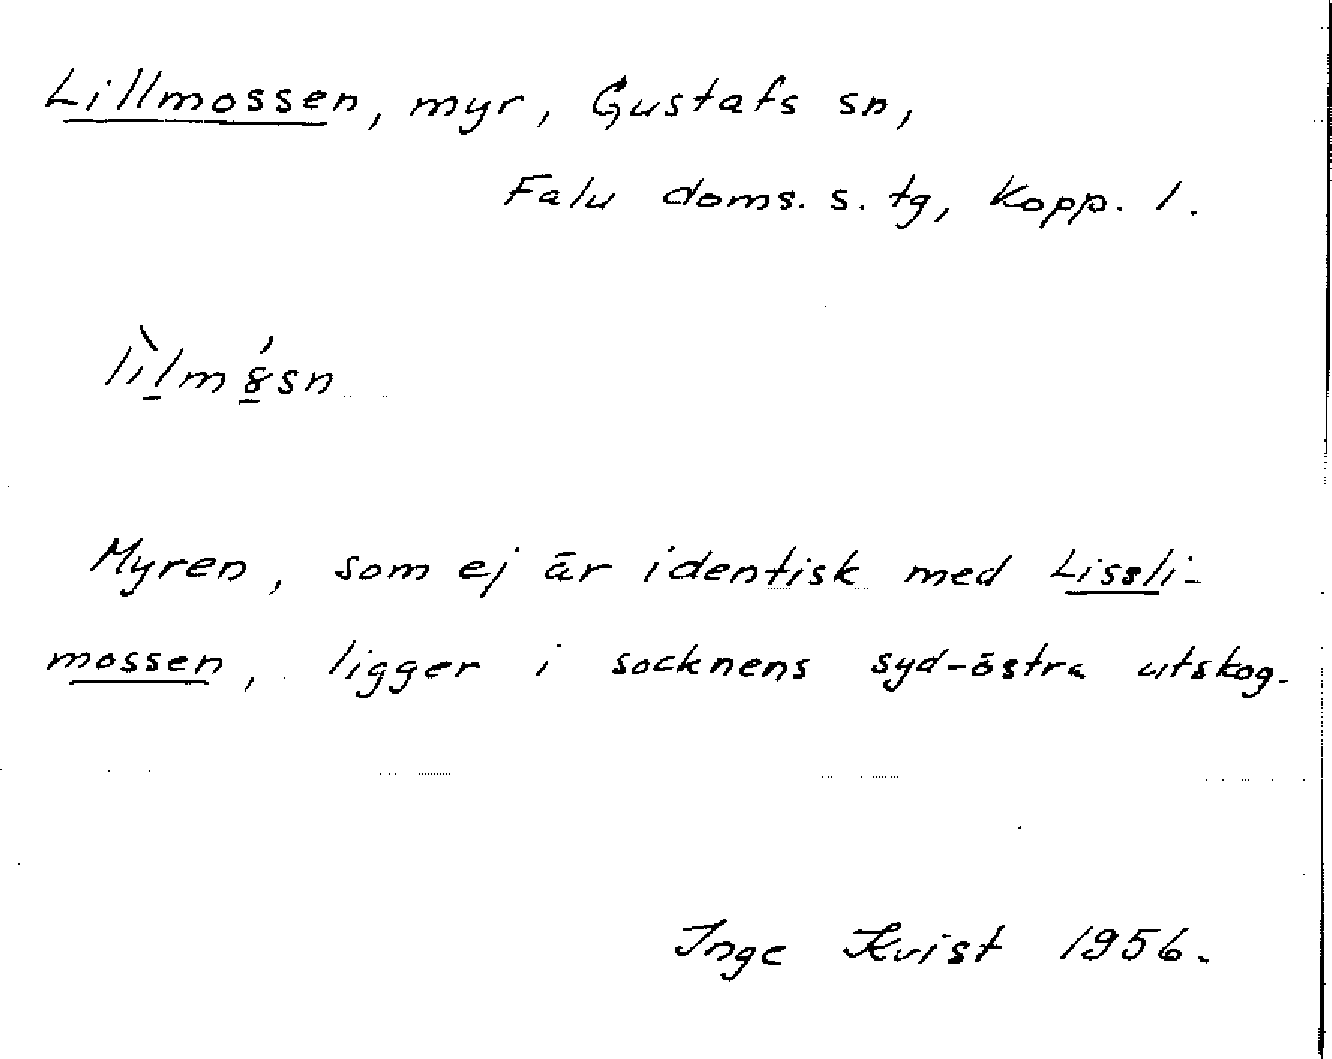 Lillmossen, myr, Gustafs sn,
Falu doms. s. tg, Kopp. l.
lìlmə́sn
Myren, som ej är identisk med Lissli-
mossen, ligger i socknens syd-östra utskog.
Inge Kvist 1956.